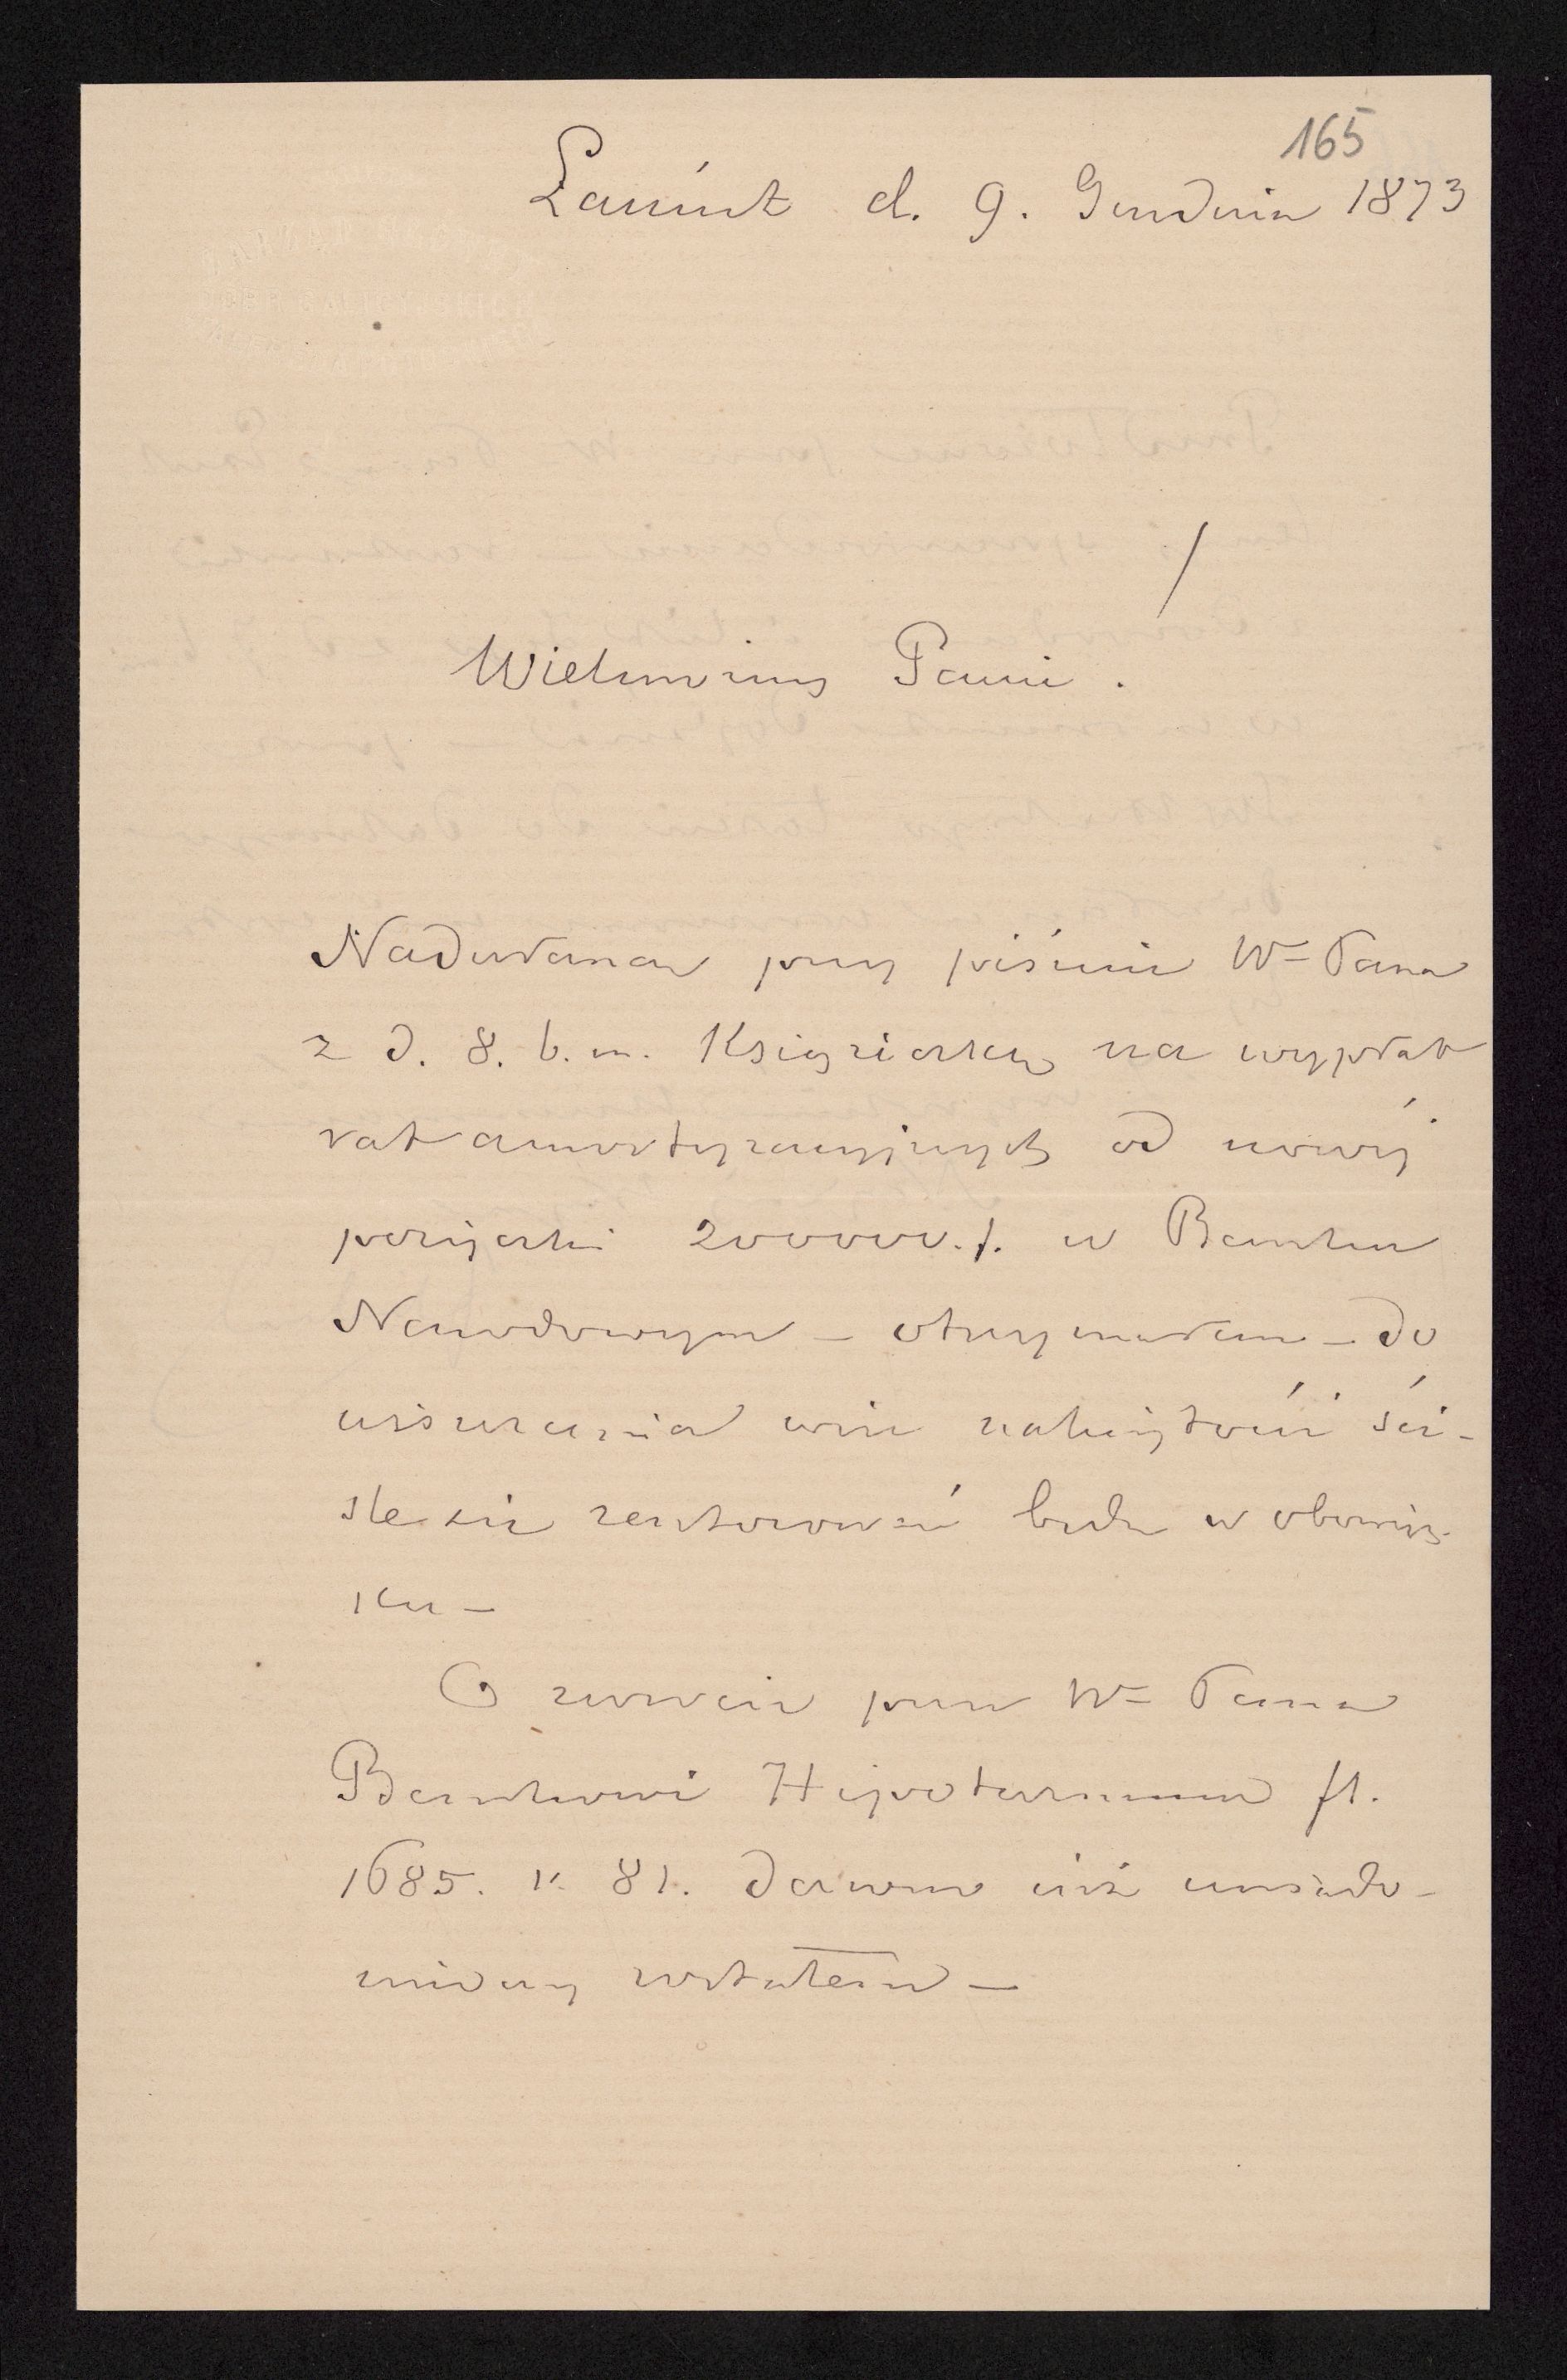 165
Łańcut d. 9. Grudnia 1873
Wielmożny Panie.
Nadesłaną przy piśmie Wº Pana
z d. 8. b. m. Książeczkę na wypłat
rat amortyzacyjnych od nowéj
pożyczki 200000. f. w Banku
Narodowym – otrzymałem – do
uiszczenia więc należytości ści-
śle się zastosować będę w obowiąz-
ku –
O zwrocie przez Wº Pana
Bankowi Hipotecznemu fl.
1685. k. 81. dawno już uwiado-
miony zostałem –